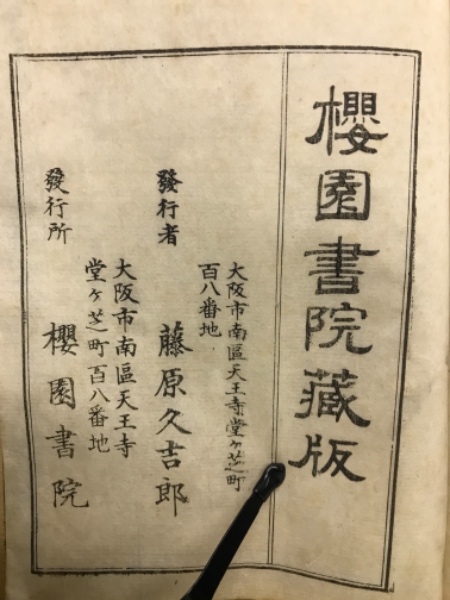 櫻園書院藏版
大阪市南區天王寺堂ヶ芝町
百八番地
發行者 藤原久吉郎
大阪市南區天王寺
堂ヶ芝町百八番地
發行所 櫻園書院